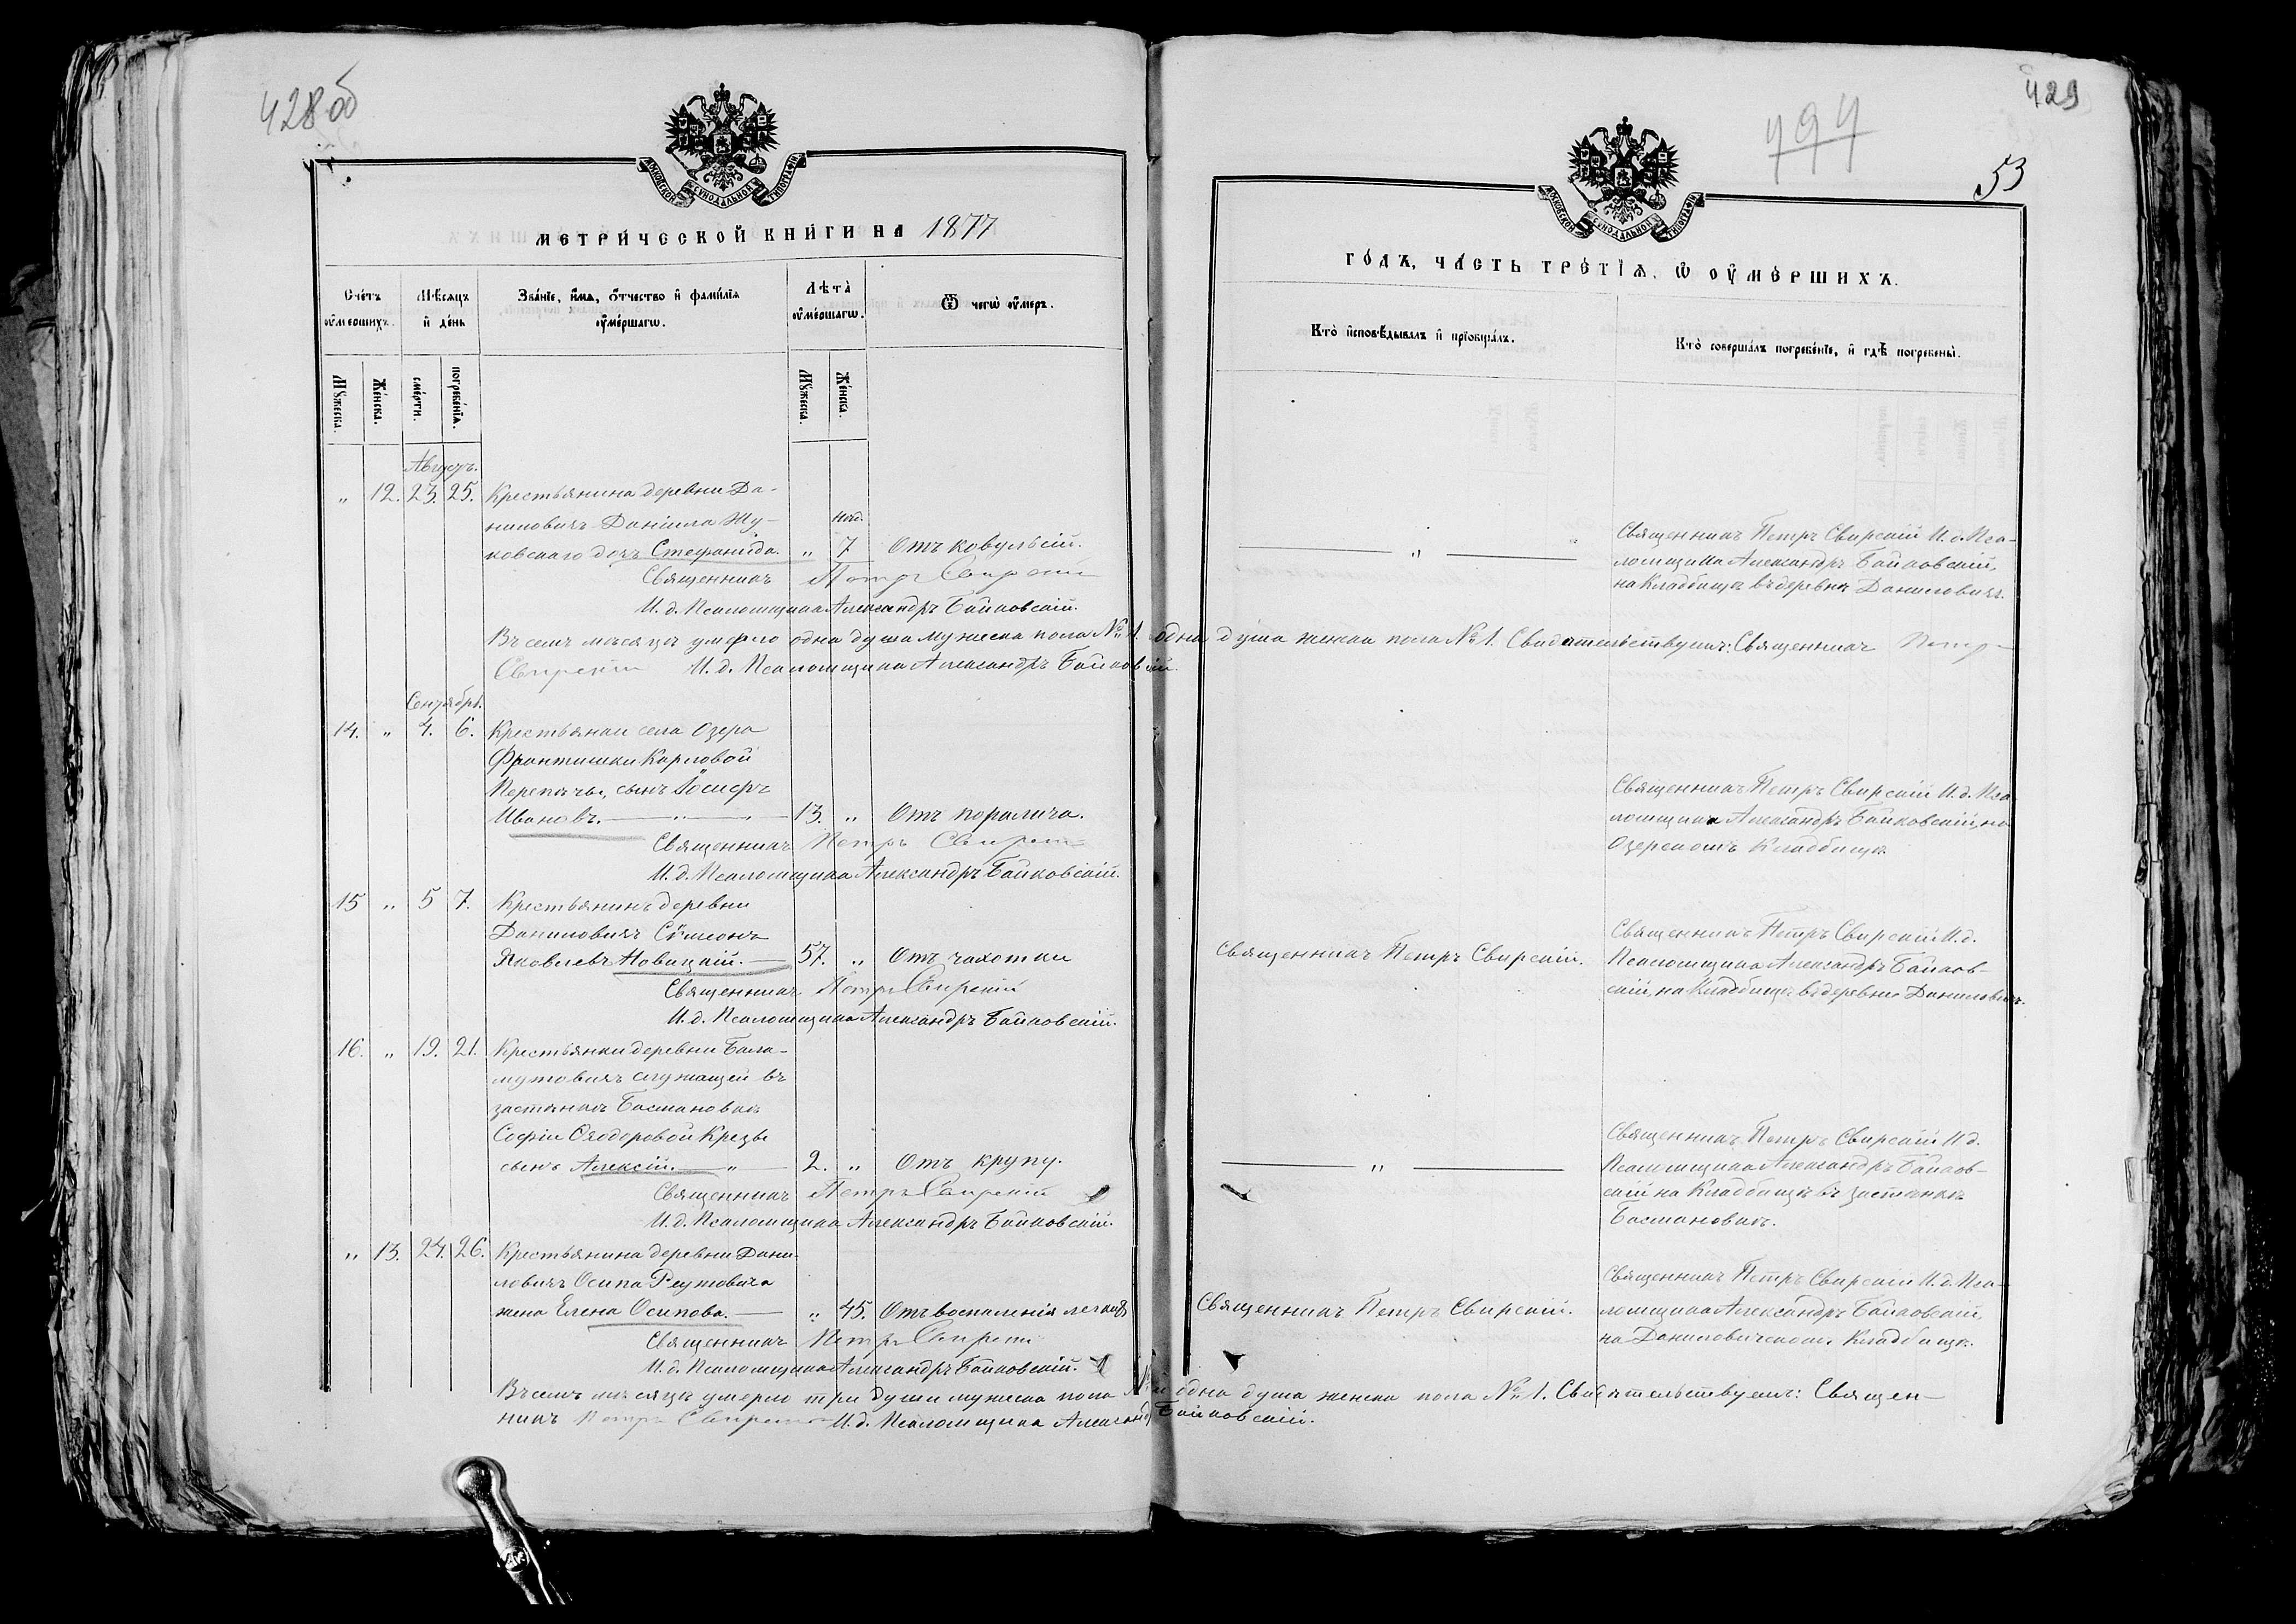 428 об
МОСКОВСКОЙ СѴНОДАЛЬНОЙ ТИПОГРАФІИ
МЕТРИЧЕСКОЙ КНИГИ НА 1877
Счетъ умершихъ.
Мѣсяцъ и день
Званіе, имя, отчество и фамилія умершагѡ.
Лѣта умершагѡ.
Ѿ чегѡ умеръ.
Мужеска.
Женска.
смерти.
погребенія.
Мужеска.
Женска.
Августъ.
„ 12. 23. 25. Крестьянина деревни Да-
ниловичъ Даніила Жу- нед.
ковскаго дочь Стефанида. „ 7 Отъ ковульсій.
Священникъ Петръ Свирскій
И. д. Псаломщика Александръ Байковскій.
Въ семъ мѣсяцѣ умерло одна душа мужеска пола № 1. одна душа женска пола № 1. Свидѣтельствуемъ: Священникъ Петръ
Свирскій И. д. Псаломщика Александръ Байковскій
Сентябрь.
14. „ 4. 6. Крестьянки села Озера
Франтишки Карловой
сынъ Іосифъ
Ивановъ. „ 13. „ Отъ паралича.
Священникъ Петръ Свирскій
И. д. Псаломщика Александръ Байковскій.
15 „ 5 7. Крестьянинъ деревни
Даниловичъ Сѵмеонъ
Яковлевъ Новицкій. 57. „ Отъ чахотки
Священникъ Петръ Свирскій
И. д. Псаломщика Александръ Байковскій.
16. „ 19. 21. Крестьянки деревни Бала-
мутовичъ служащей въ
застѣнкѣ Басмановкѣ
Софіи Ѳеодоровой
сынъ Алексій. „ 2. „ Отъ крупу.
Священникъ Петръ Свирскій
И. д. Псаломщика Александръ Байковскій.
„ 13. 24. 26. Крестьянина деревни Дани-
ловичъ Осипа Реутовича
жена Елена Осипова. „ 45. Отъ воспаленія легкихъ
Священникъ Петръ Свирскій
И. д. Псаломщика Александръ Байковскій.
Въ семъ мѣсяцѣ умерло три души мужеска пола одна душа женска пола № 1. Свидѣтельствуемъ: Священ-
никъ Петръ Свирскій И. д. Псаломщика Александръ Байковскій.
429
494
53
МОСКОВСКОЙ СѴНОДАЛЬНОЙ ТИПОГРАФІИ
ГОДЪ, ЧАСТЬ ТРЕТІЯ, Ѡ УМЕРШИХЪ.
Кто исповѣдывалъ и пріобщалъ.
Кто совершалъ погребеніе, и гдѣ погребены.
„
Священникъ Петръ Свирскій И. д. Пса-
ломщика Александръ Байковскій,
на Кладбищѣ въ деревнѣ Даниловичъ.
Священникъ Петръ Свирскій И. д. Пса-
ломщика Александръ Байковскій, на
Озерскомъ Кладбищѣ
Священникъ Петръ Свирскій.
Священникъ Петръ Свирскій И. д.
Псаломщика Александръ Байков-
скій, на Кладбищѣ въ деревнѣ Даниловичъ.
„
Священникъ Петръ Свирскій И д.
Псаломщика Александръ Байков-
скій на Кладбищѣ въ застѣнкѣ
Басмановкѣ.
Священникъ Петръ Свирскій.
Священникъ Петръ Свирскій И. д. Пса-
ломщика Александръ Байковскій,
на Даниловичскомъ Кладбищѣ.